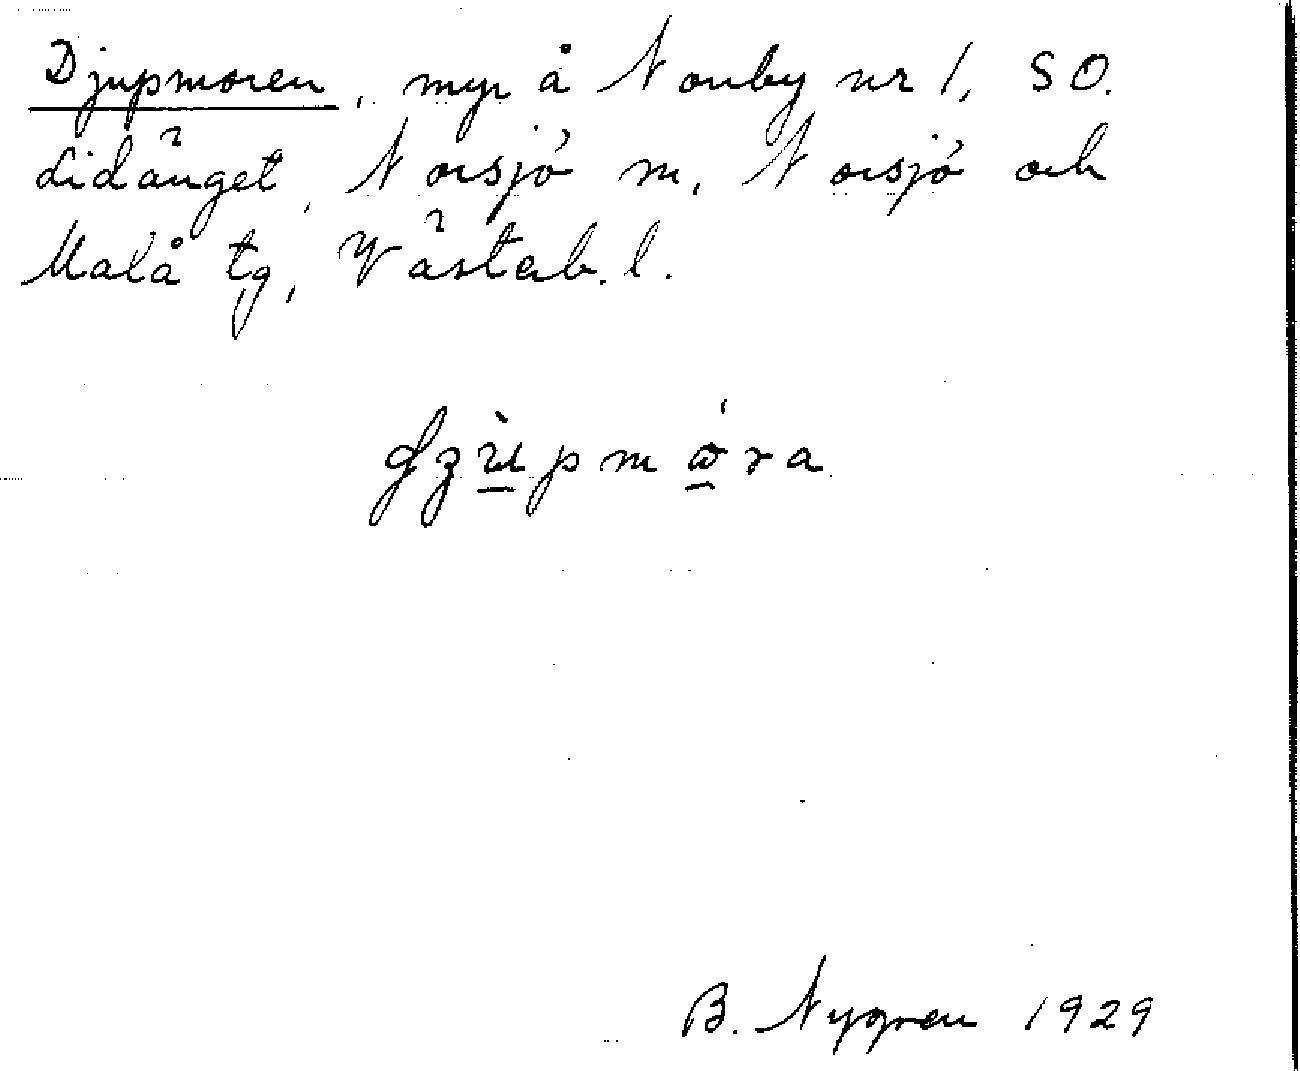 Djupmoren, myr å Norrby nr 1, SO.
Lidänget, Norsjö sn, Norsjö och
Malå tg, Västerb. l.
B. Nygren 1929